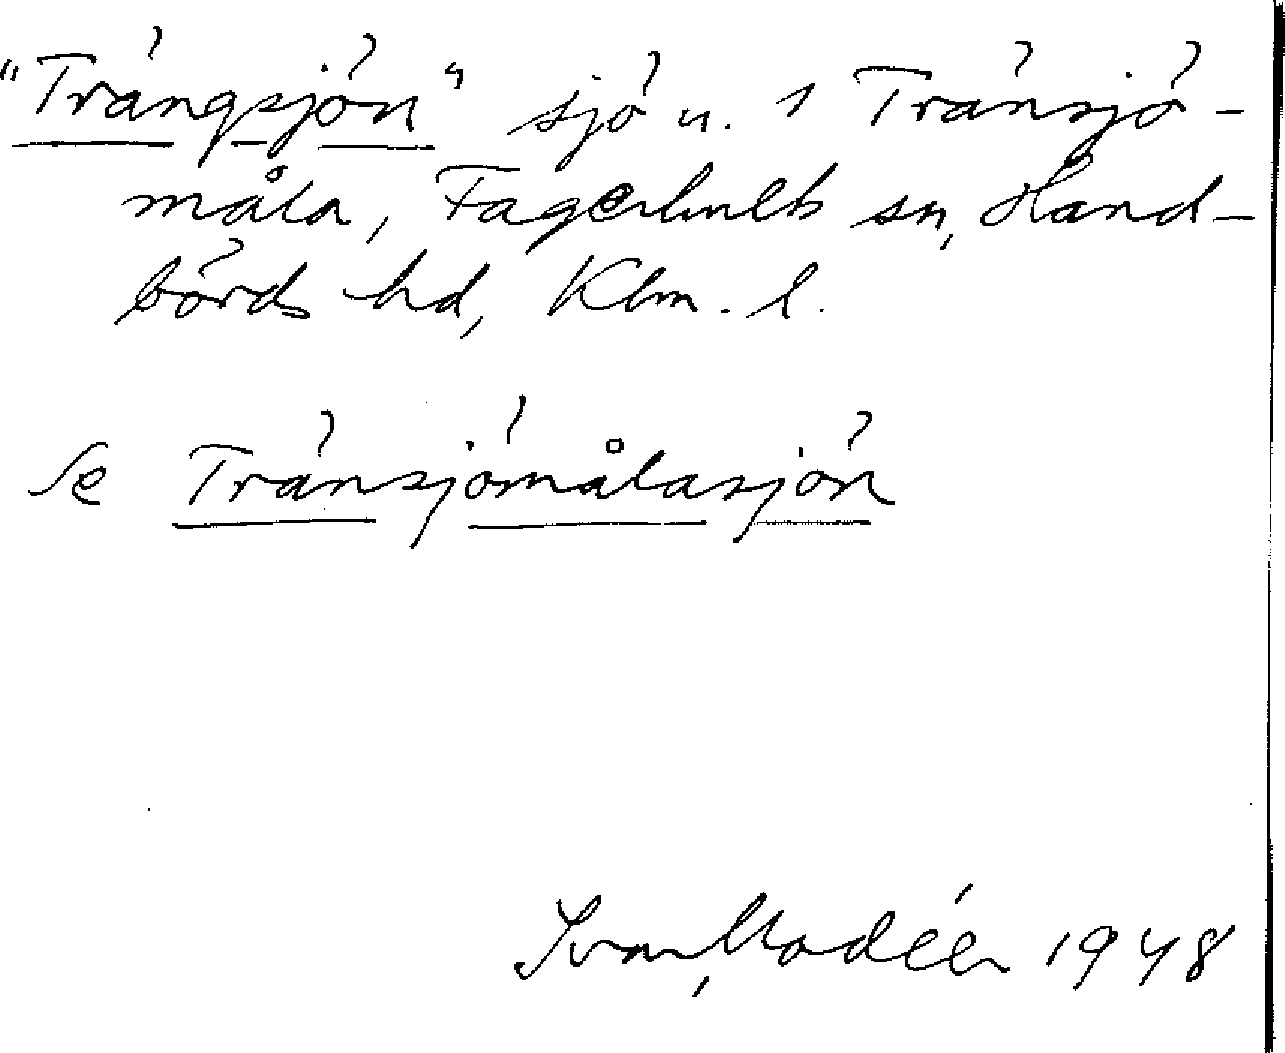 "Trängsjön" sjö u. 1 Tränsjö-
måla, Fagerhults sn, Hand-
börds hd, Klm. l.
Se Tränsjömålasjön
Ivar Modéer 1948